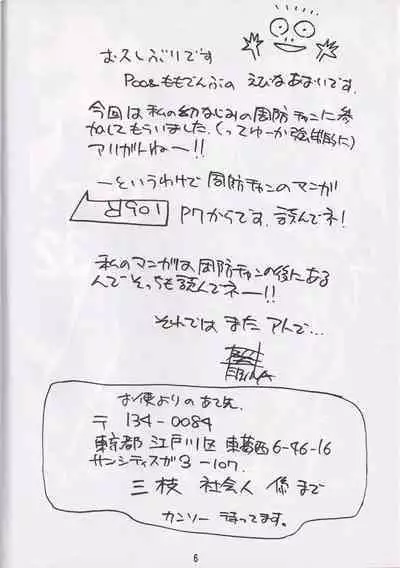 おひさしぶりです
Poo&ももでんぶの えびなあおいです。
今回は私の幼なじみの周防チャンに参
加してもらいました。(ってゆーか強制的に)
アリガトねー!!
ーというわけで 周防チャンのマンガ
P7からです。読んでネ!
私のマンガは周防チャンの後にある
んで そっちも読んでネー!!
それでは また アトで…
EBINA
お便よりの あて先
〒134-0084
東京都 江戸川区 東葛西6-46-16
サンシティスガ3-107
三枝 社会人 係まで
カンソー 待ってます。
6